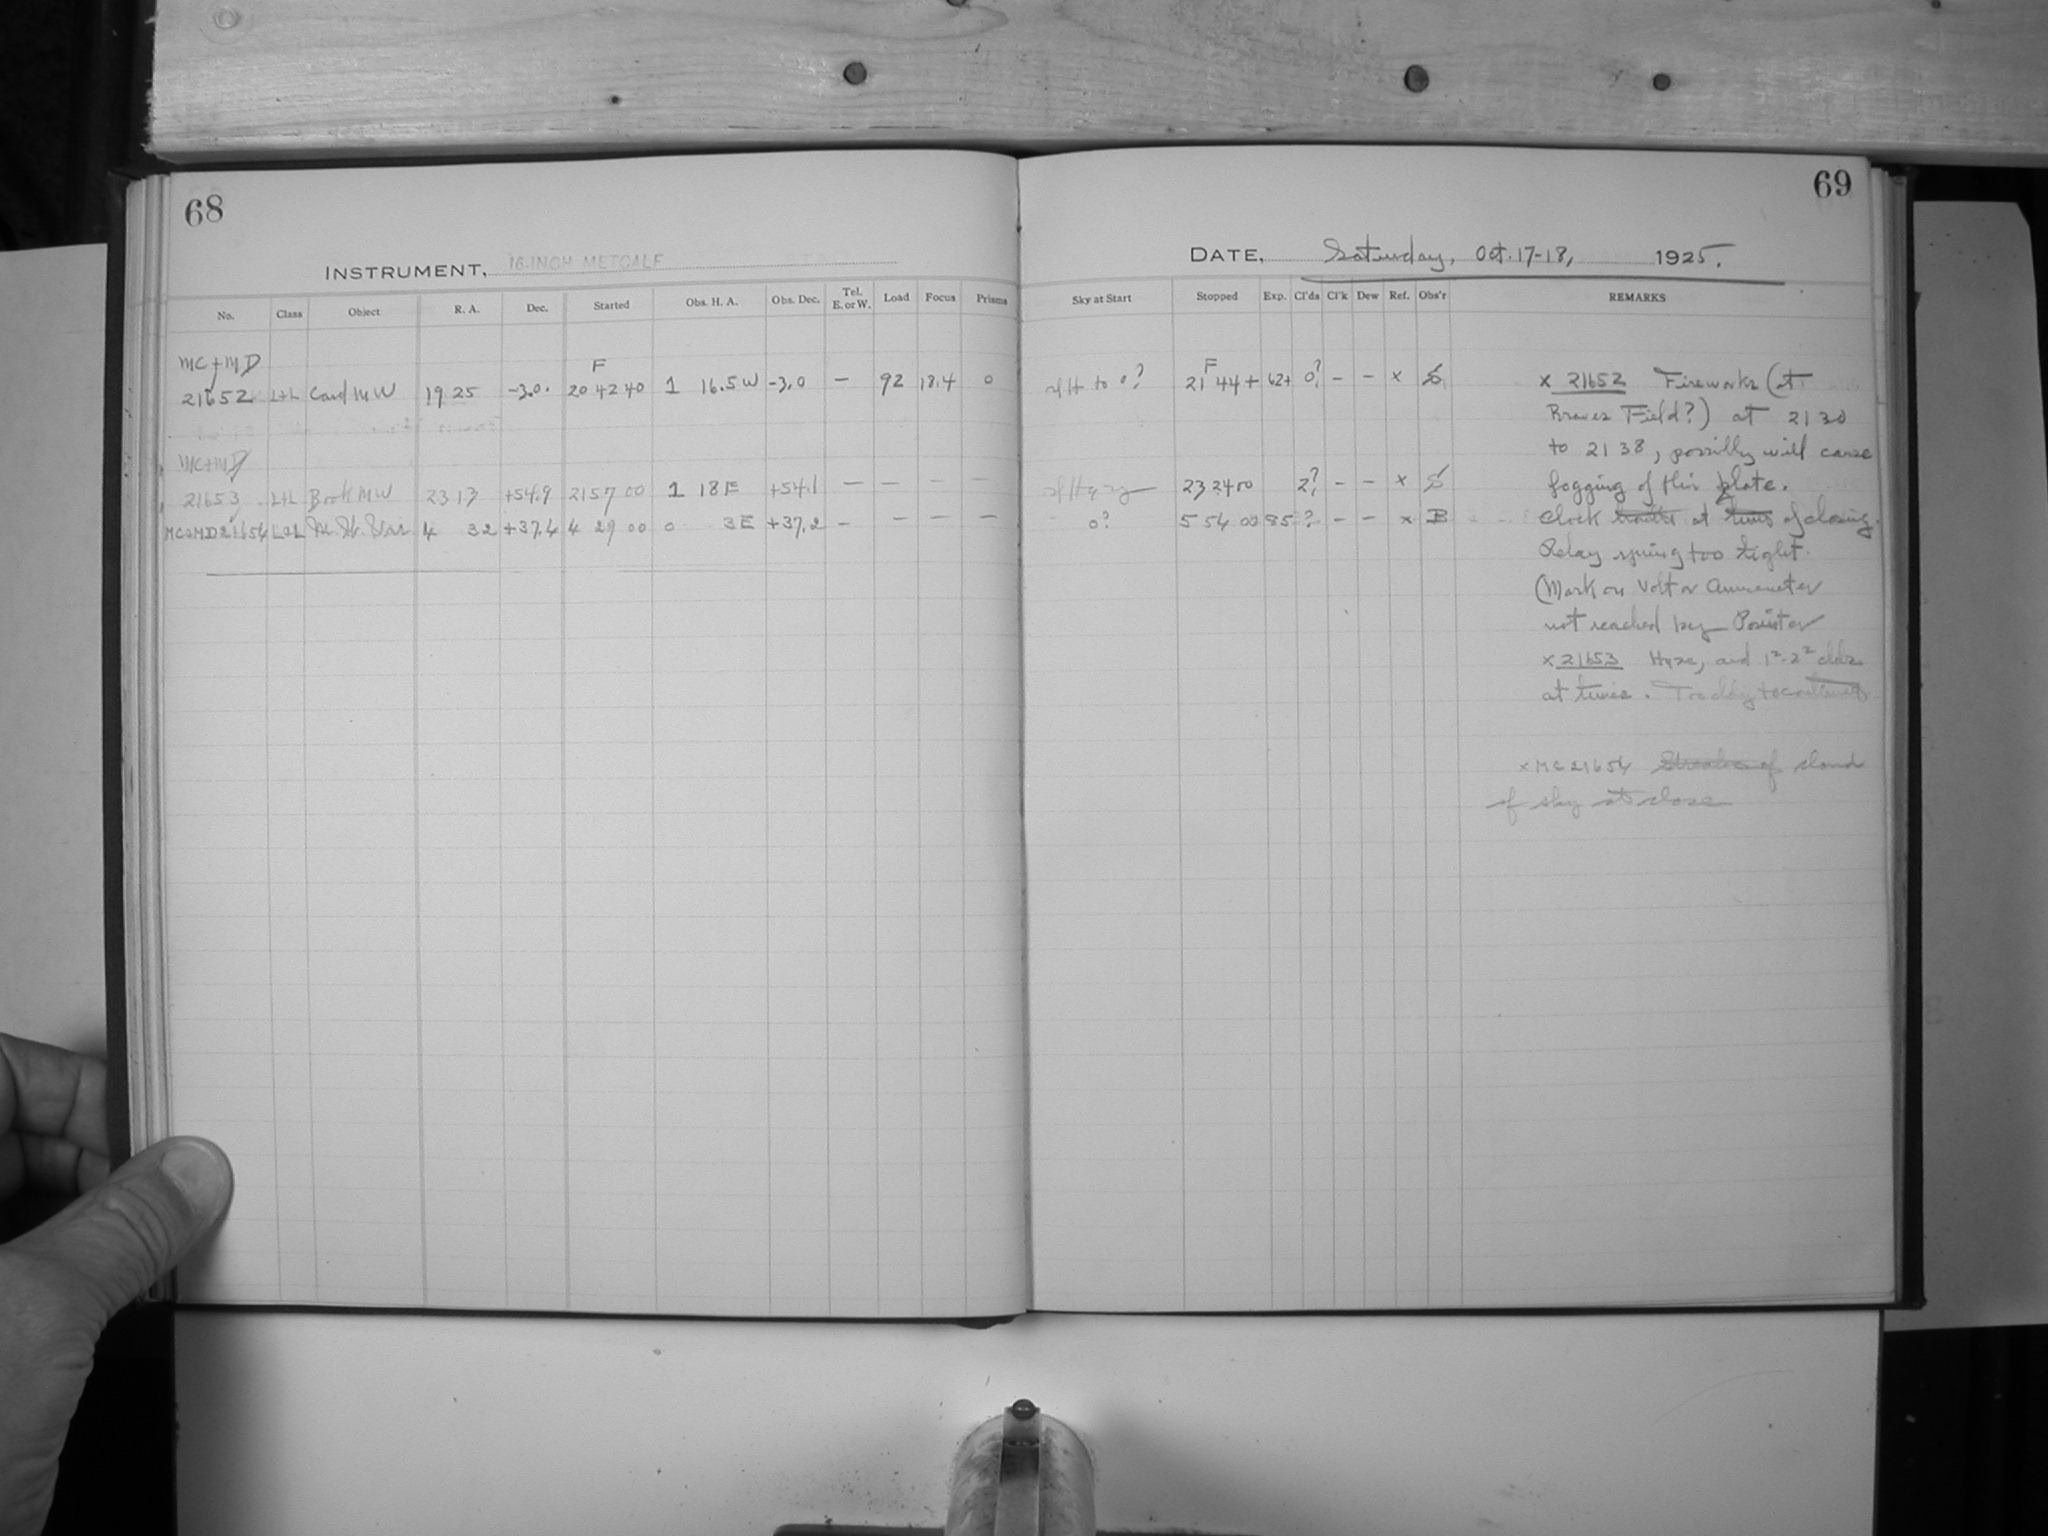 68
INSTRUMENT, 16-INCH METCALF
No. Class Object R. A. Dec. Started Obs. H. A. Obs. Dec. Tel. E. or W. Load Focus Prisms
MC+MD F
21652 L+L Card MW 19 25 -3.0. 20 42 40 1 16.5 W -3.0 — 92 18.4 0
MC+MD
21653 L+L Book MW 23 13 +54.9 21 57 00 1 18 E +54.1 — — — —
MC&MD21654 L&L 4 32 +37.4 4 29 00 0 3E +37.2 — — — —
69
DATE, Saturday, Oct. 17-18, 1925.
Sky at Start Stopped Exp. Cl'ds Cl'k Dew Ref. Obs'r REMARKS
F
to 0? 21 44+ 62+ 0? – – x
23 24 00 2? – – x
0? 5 54 00 85 ? – – x B
x 21652 Fireworks (at
Braves Field?) at 21 30
to 21 38, possibly will cause
fogging of this plate.
Clock at of closing.
Relay spring too tight.
(Mark on Volt or Ammeter
not reached by Pointer
x 21653 Haze, and 1²-2² clds
at times.
x MC21654 Streaks of cloud
of sky at close